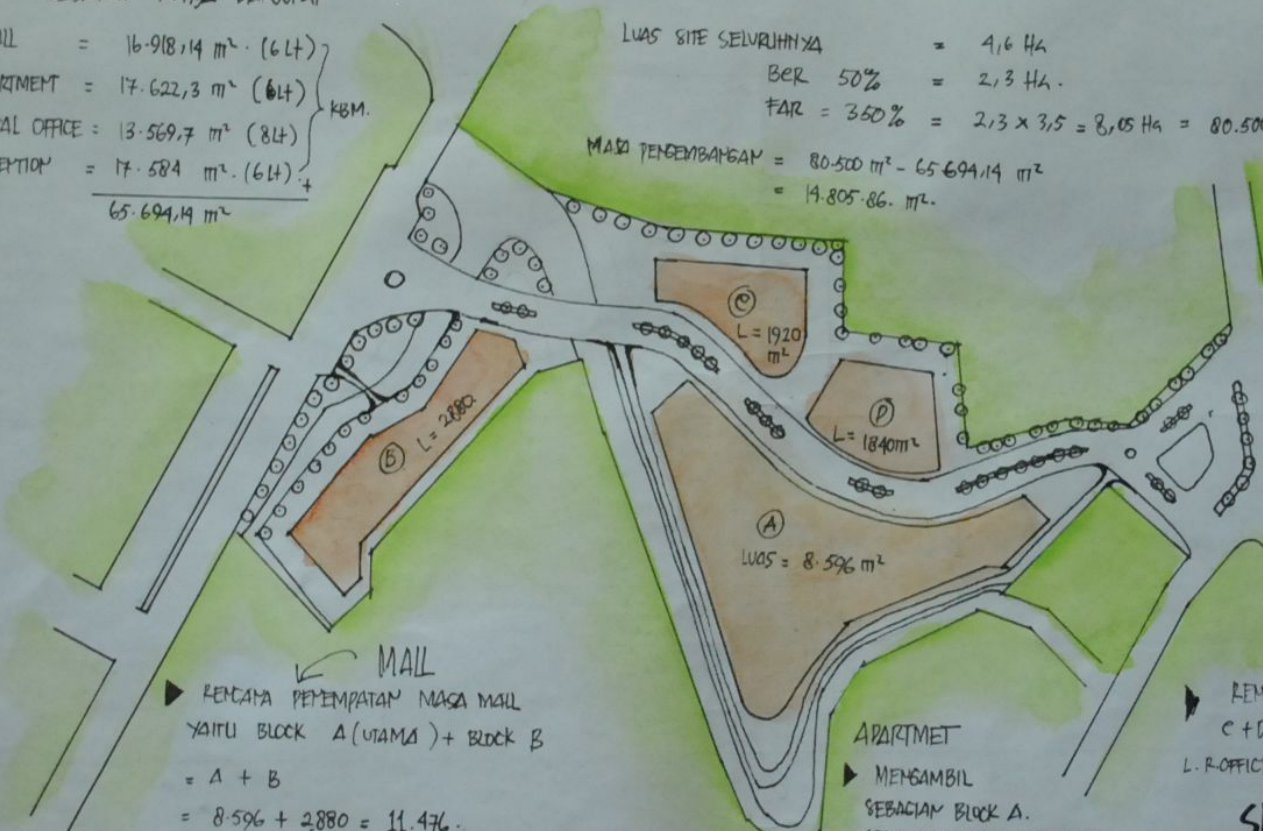 LL = 16.918,14 m². (6 Lt)
RTMENT = 17.622,3 m² (6Lt)
AL OFFICE = 13.569,7 m² (8Lt)
KBM.
= 17.584 m². (6Lt) +
65.694,14 m²
LUAS SITE SELURUHNYA = 4,6 Ha
BCR 50% = 2,3 Ha.
FAR = 350% = 2,3 x 3,5 = 8,05 Ha = 80.500
MASA PENGEMBANGAN = 80.500 m² - 65.694,14 m²
= 14.805.86. m².
C
L = 1920
m²
D
L = 1840 m²
B L = 2880
A
LUAS = 8.596 m²
MALL
RENCANA PENEMPATAN MASA MALL
YAITU BLOCK A (UTAMA) + BLOCK B
= A + B
= 8.596 + 2880 = 11.476.
APARTMET
MENGAMBIL
SEBAGIAN BLOCK A.
REN
C + D
L. R.OFFIC